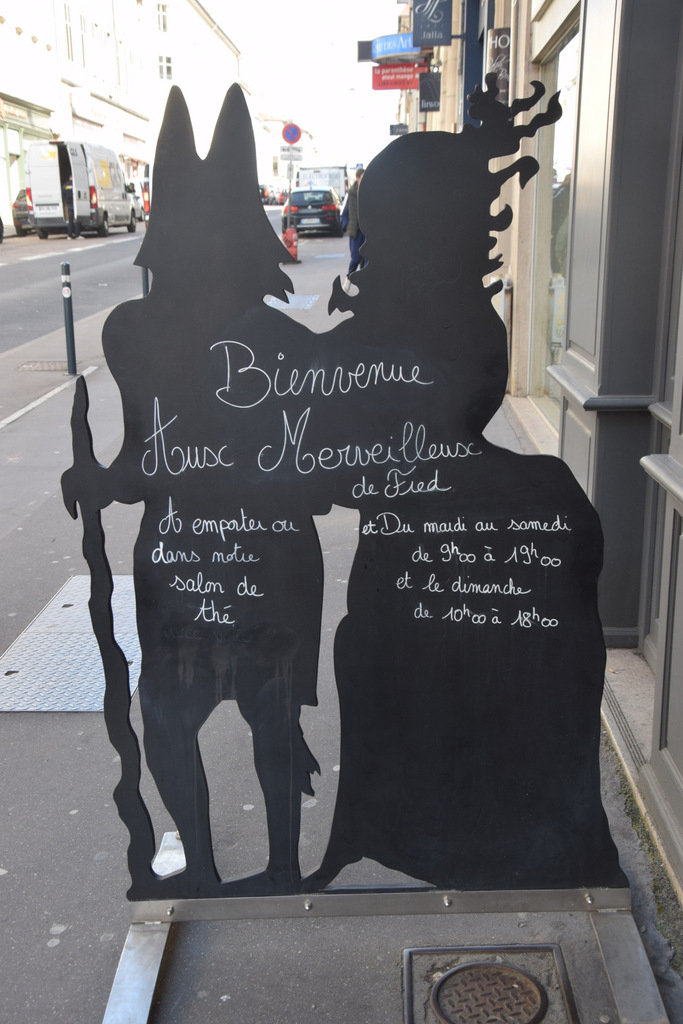 Bienvenue
Aux Merveilleux
de Fred
A emporter ou
dans notre
salon de
thé
et Du mardi au samedi
de 9h00 à 19h00
et le dimanche
de 10h00 à 18h00
la parenthèse
GLS
HO